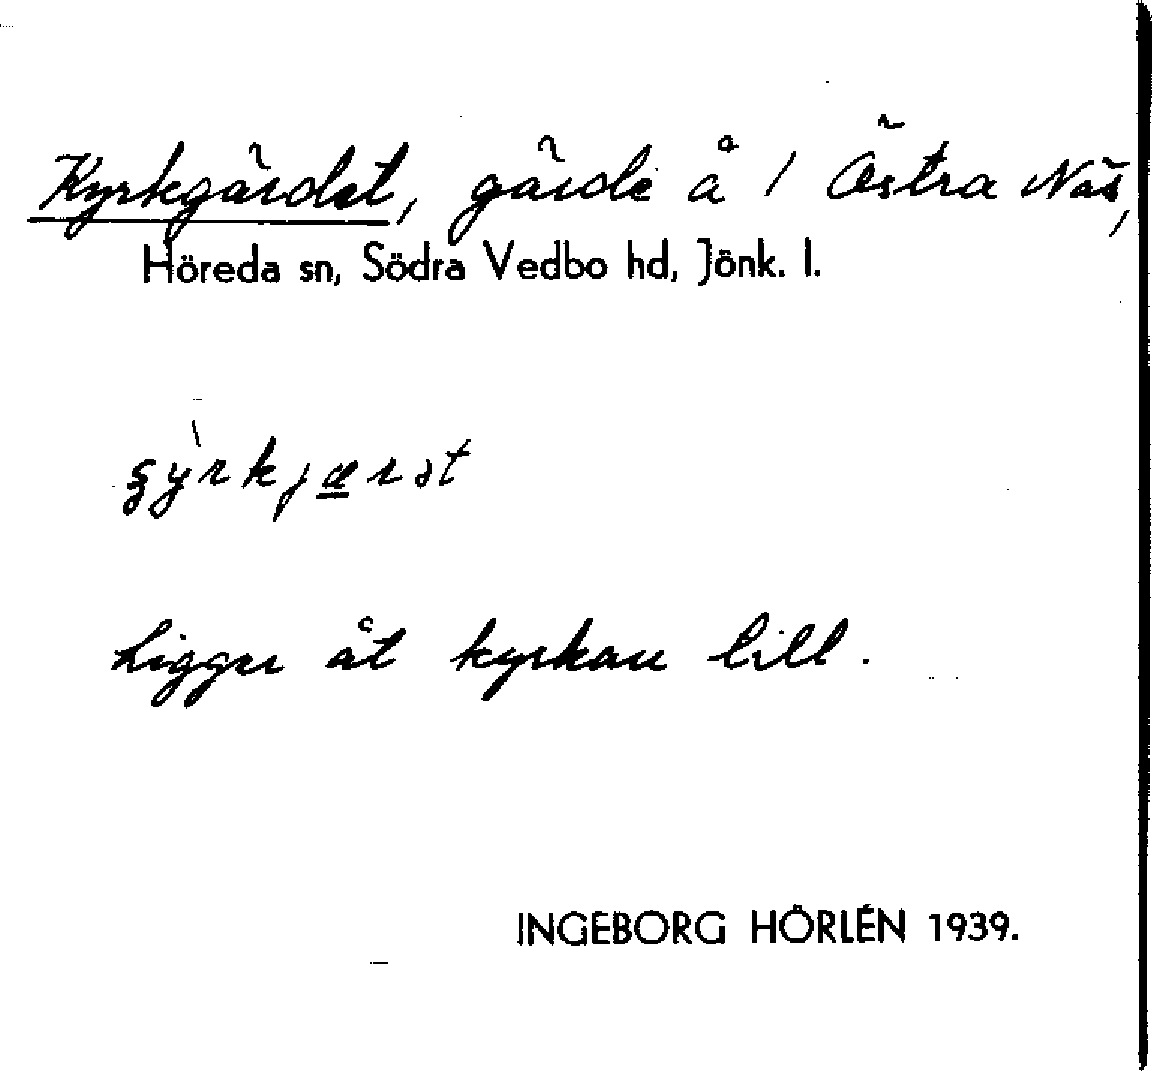 Kyrkgärdet, gärde å 1 Östra Näs,
Höreda sn, Södra Vedbo hd, Jönk. l.
Ligger åt kyrkan till.
INGEBORG HÖRLÉN 1939.